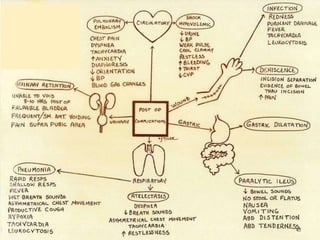 PULMONARY
EMBOLISM
CIRCULATORY
SHOCK
HYPOVOLEMIC
INFECTION
CHEST PAIN
DYSPNEA
TACHYCARDIA
↑ ANXIETY
DIAPHORESIS
↓ ORIENTATION
↓ BP
BLOOD GAS CHANGES
↓ URINE
↓ BP
WEAK PULSE
COOL CLAMMY
RESTLESS
↑ BLEEDING
↑ THIRST
↓ CVP
REDNESS
PURULENT DRAINAGE
FEVER
TACHYCARDIA
LEUKOCYTOSIS
DEHISCENCE
INCISION SEPARATION
EVIDENCE OF BOWEL
THRU INCISION
↑ PAIN
URINARY RETENTION
UNABLE TO VOID
8-10 HRS POST OP
PALPABLE BLADDER
FREQUENT/SM. AMT VOIDING
PAIN SUPRA PUBIC AREA
URINARY
POST OP
COMPLICATIONS
WOUND
GASTRIC
GASTRIC DILATATION
PNEUMONIA
RAPID RESPS
SHALLOW RESPS
FEVER
WET BREATH SOUNDS
ASYMMETRICAL CHEST MOVEMENT
PRODUCTIVE COUGH
HYPOXIA
TACHYCARDIA
LEUKOCYTOSIS
RESPIRATORY
ATELECTASIS
DYSPNEA
↓ BREATH SOUNDS
ASYMMETRICAL CHEST MOVEMENT
TACHYCARDIA
↑ RESTLESSNESS
PARALYTIC ILEUS
↓ BOWEL SOUNDS
NO STOOL OR FLATUS
NAUSEA
VOMITING
ABD DISTENTION
ABD TENDERNESS